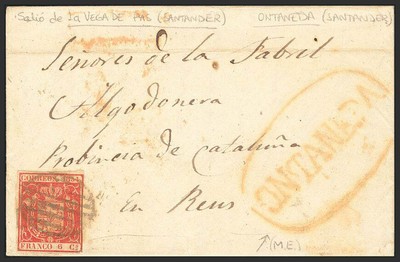 Salió de la VEGA DE PAS (SANTANDER)
ONTANEDA (SANTANDER)
Señores de la Fabril
Algodonera
Probincia de Cataluña
En Reus
ONTANEDA
CORREOS 1854
FRANCO 6 Cs
(M.E.)